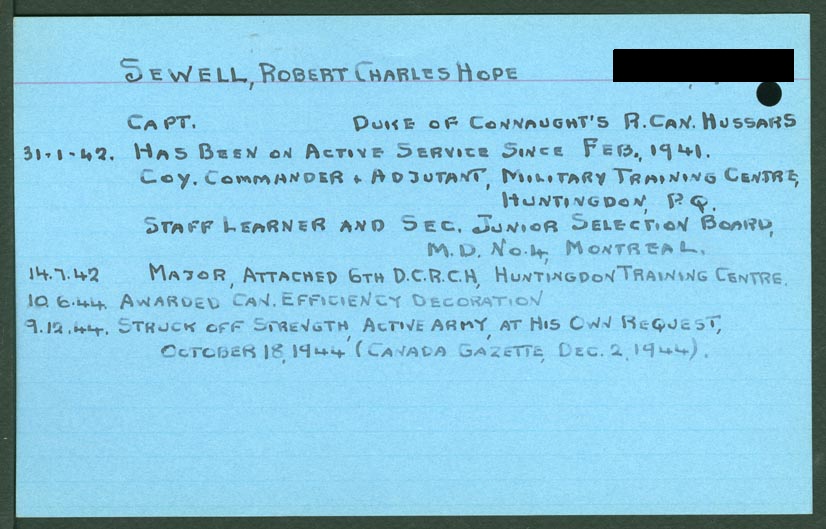 SEWELL, ROBERT CHARLES HOPE
CAPT. DUKE OF CONNAUGHT'S R. CAN. HUSSARS
31-1-42. HAS BEEN ON ACTIVE SERVICE SINCE FEB., 1941.
COY. COMMANDER & ADJUTANT, MILITARY TRAINING CENTRE,
HUNTINGDON, P.Q.
STAFF LEARNER AND SEC. JUNIOR SELECTION BOARD,
M.D. NO.4, MONTREAL.
14.7.42 MAJOR, ATTACHED 6TH D.C.R.C.H, HUNTINGDON TRAINING CENTRE.
10.6.44. AWARDED CAN. EFFICIENCY DECORATION
9.12.44. STRUCK OFF STRENGTH, ACTIVE ARMY, AT HIS OWN REQUEST,
OCTOBER 18, 1944 (CANADA GAZETTE, DEC. 2, 1944).